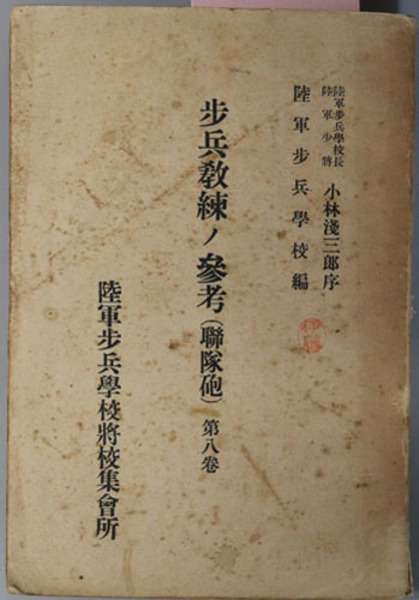 陸軍步兵學校長
陸軍少將
小林淺三郎序
陸軍步兵學校編
步兵教練ノ參考(聯隊砲)第八卷
陸軍步兵學校將校集會所